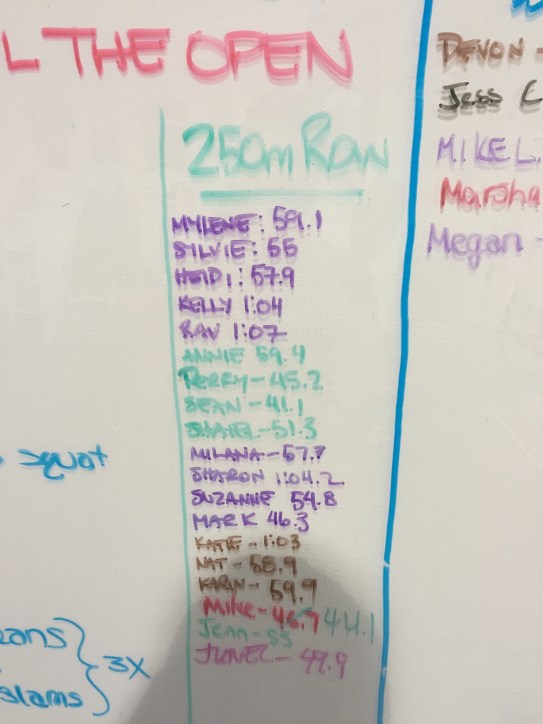 L THE OPEN
250m Row
MYLENE: 59.1
SYLVIE: 55
HEIDI: 57.9
KELLY 1:04
RAV 1:07
ANNIE 59.4
PERRY - 45.2
SEAN - 41.1
SHAYEL - 51.3
MILANA - 57.7
SHARON 1:04.2
SUZANNE 54.8
MARK 46.3
KATIE - 1:03
NAT - 58.9
KARIN - 59.9
Mike - 46.7 44.1
Jenn - 53
JUNEL - 49.9
DEVON -
Jess C
MIKE L.
Marsha
Megan -
squat
eans
slams } 3X